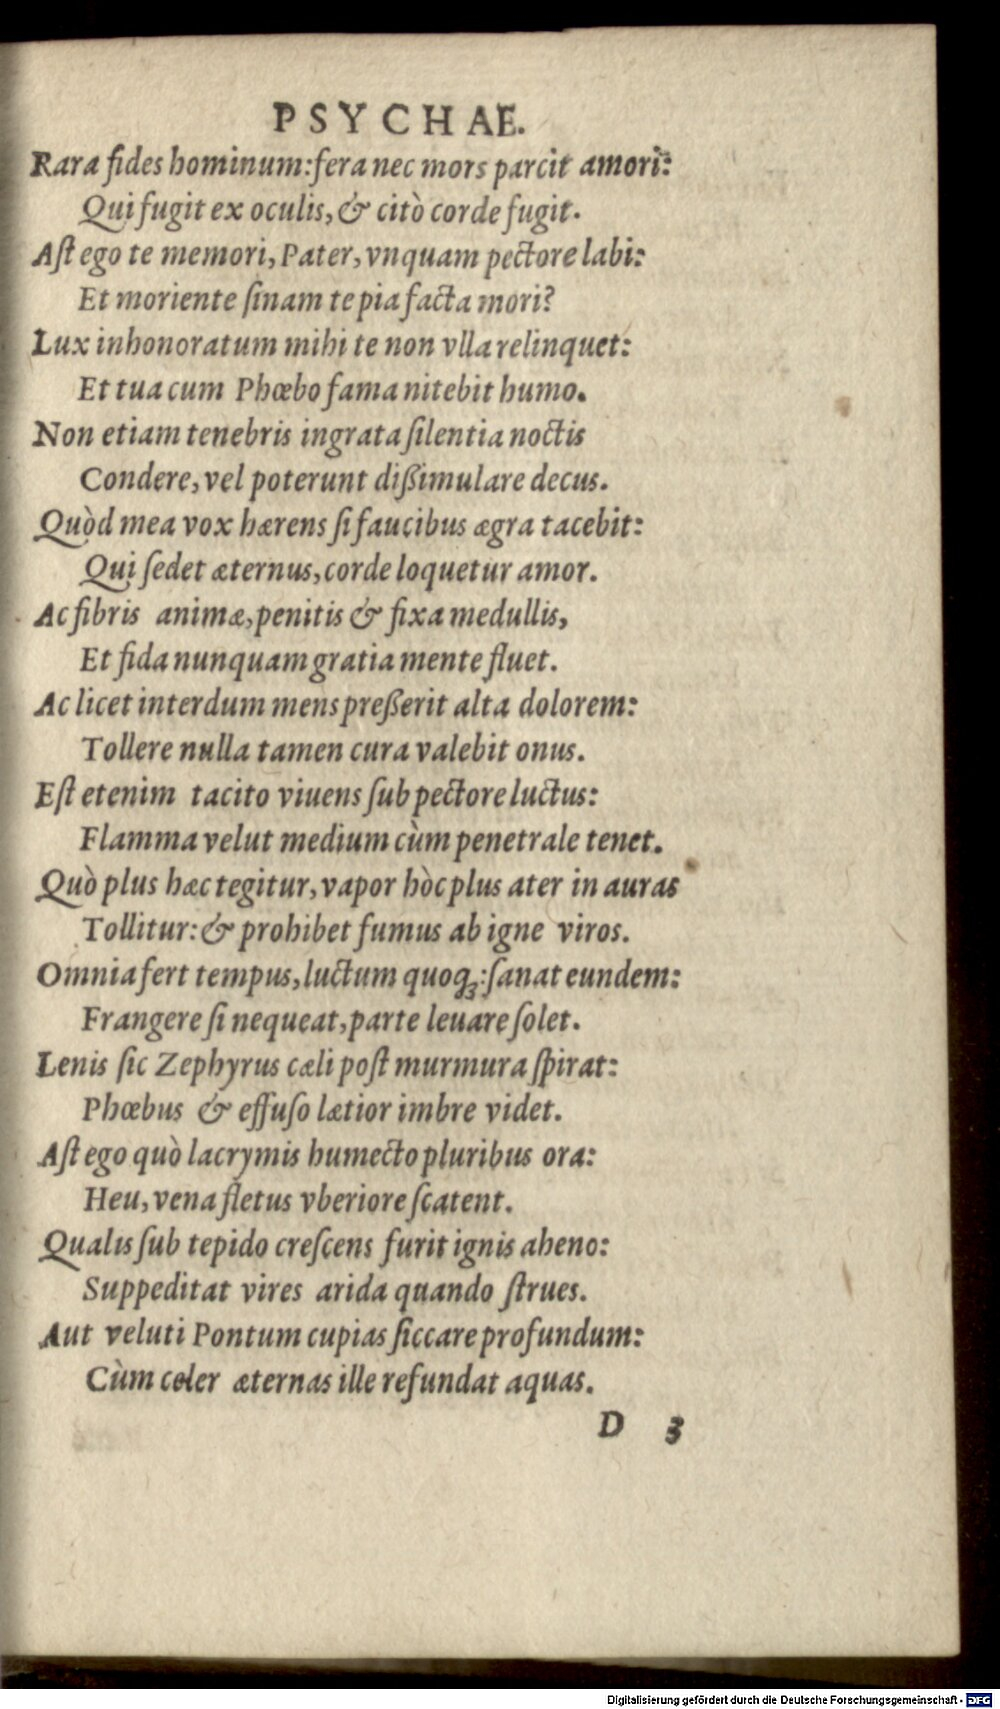 PSYCHAE.
Rara fides hominum: fera nec mors parcit amori:
Qui fugit ex oculis, & citò corde fugit.
Aſt ego te memori, Pater, vnquam pectore labi:
Et moriente ſinam te pia facta mori?
Lux inhonoratum mihi te non vlla relinquet:
Et tua cum Phœbo fama nitebit humo.
Non etiam tenebris ingrata ſilentia noctis
Condere, vel poterunt dißimulare decus.
Quòd mea vox hærens ſi faucibus ægra tacebit:
Qui ſedet æternus, corde loquetur amor.
Ac fibris animæ, penitis & fixa medullis,
Et fida nunquam gratia mente fluet.
Ac licet interdum mens preßerit alta dolorem:
Tollere nulla tamen cura valebit onus.
Eſt etenim tacito viuens ſub pectore luctus:
Flamma velut medium cùm penetrale tenet.
Quò plus hæc tegitur, vapor hòc plus ater in auras
Tollitur: & prohibet fumus ab igne viros.
Omnia fert tempus, luctum quoq;: ſanat eundem:
Frangere ſi nequeat, parte leuare ſolet.
Lenis ſic Zephyrus cæli poſt murmura ſpirat:
Phœbus & effuſo lætior imbre videt.
Aſt ego quò lacrymis humecto pluribus ora:
Heu, vena fletus vberiore ſcatent.
Qualis ſub tepido creſcens furit ignis aheno:
Suppeditat vires arida quando ſtrues.
Aut veluti Pontum cupias ſiccare profundum:
Cùm celer æternas ille refundat aquas.
D 3
Digitalisierung gefördert durch die Deutsche Forschungsgemeinschaft - DFG